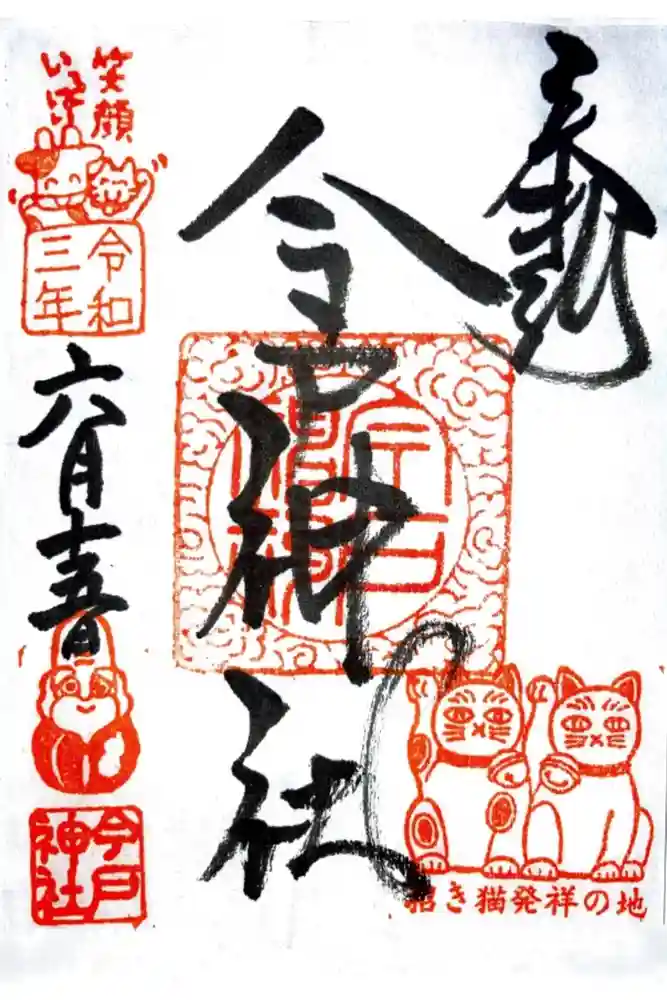 奉拝
今戸神社
招き猫発祥の地
笑顔
いっぱい
令和
三年
六月十五日
今戸
神社